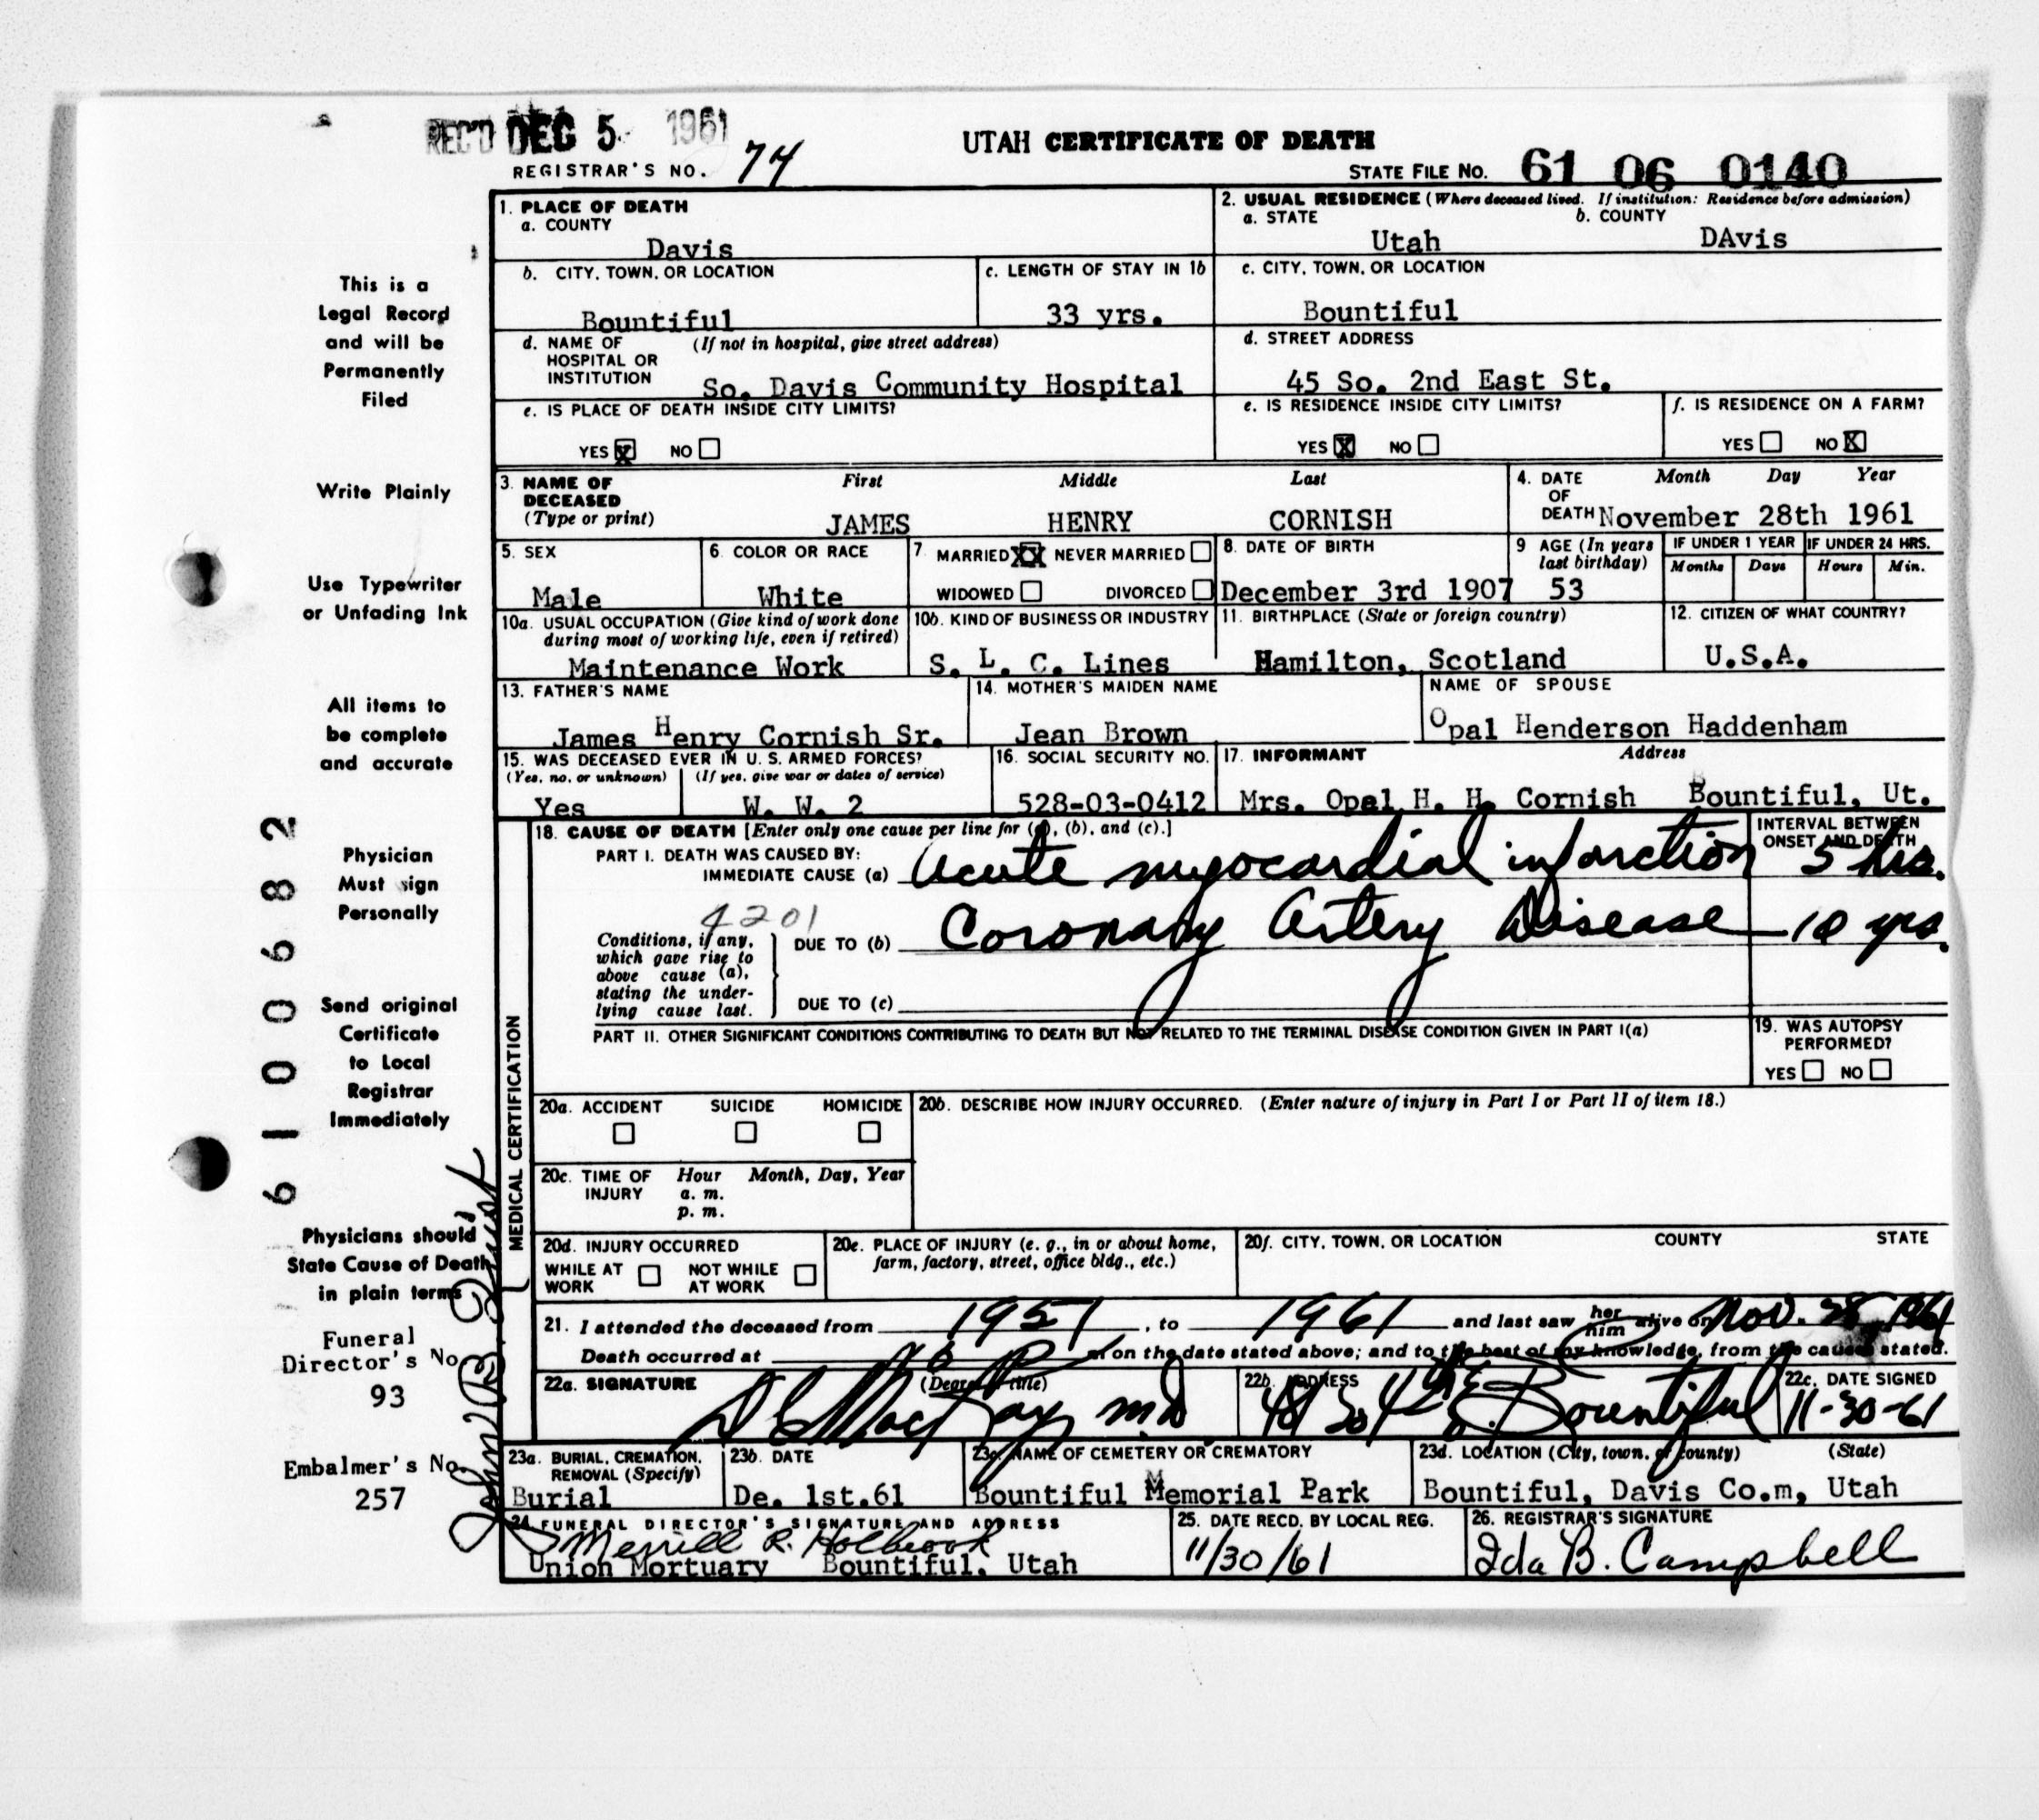 REC'D DEC 5 1961
UTAH CERTIFICATE OF DEATH
REGISTRAR'S NO. 74
STATE FILE NO. 61 06 0140
1. PLACE OF DEATH
a. COUNTY
Davis
2. USUAL RESIDENCE (Where deceased lived. If institution: Residence before admission)
a. STATE b. COUNTY
Utah DAvis
b. CITY, TOWN, OR LOCATION
Bountiful
c. LENGTH OF STAY IN 1b
33 yrs.
c. CITY, TOWN, OR LOCATION
Bountiful
d. NAME OF (If not in hospital, give street address)
HOSPITAL OR
INSTITUTION So. Davis Community Hospital
d. STREET ADDRESS
45 So. 2nd East St.
e. IS PLACE OF DEATH INSIDE CITY LIMITS?
YES X NO
e. IS RESIDENCE INSIDE CITY LIMITS?
YES X NO
f. IS RESIDENCE ON A FARM?
YES NO X
3. NAME OF DECEASED (Type or print)
First Middle Last
JAMES HENRY CORNISH
4. DATE OF DEATH Month Day Year
November 28th 1961
5. SEX
Male
6. COLOR OR RACE
White
7. MARRIED XX NEVER MARRIED
WIDOWED DIVORCED
8. DATE OF BIRTH
December 3rd 1907
9 AGE (In years last birthday)
53
IF UNDER 1 YEAR IF UNDER 24 HRS.
Months Days Hours Min.
10a. USUAL OCCUPATION (Give kind of work done during most of working life, even if retired)
Maintenance Work
10b. KIND OF BUSINESS OR INDUSTRY
S. L. C. Lines
11. BIRTHPLACE (State or foreign country)
Hamilton, Scotland
12. CITIZEN OF WHAT COUNTRY?
U.S.A.
13. FATHER'S NAME
James Henry Cornish Sr.
14. MOTHER'S MAIDEN NAME
Jean Brown
NAME OF SPOUSE
Opal Henderson Haddenham
15. WAS DECEASED EVER IN U. S. ARMED FORCES?
(Yes, no, or unknown) (If yes, give war or dates of service)
Yes W. W. 2
16. SOCIAL SECURITY NO.
528-03-0412
17. INFORMANT Address
Mrs. Opal H. H. Cornish Bountiful, Ut.
MEDICAL CERTIFICATION
18. CAUSE OF DEATH [Enter only one cause per line for (a), (b), and (c).]
PART I. DEATH WAS CAUSED BY:
IMMEDIATE CAUSE (a) Acute myocardial infarction
INTERVAL BETWEEN ONSET AND DEATH
5 hrs.
4201
Conditions, if any, which gave rise to above cause (a), stating the underlying cause last.
DUE TO (b) Coronary Artery Disease 10 yrs.
DUE TO (c)
PART II. OTHER SIGNIFICANT CONDITIONS CONTRIBUTING TO DEATH BUT NOT RELATED TO THE TERMINAL DISEASE CONDITION GIVEN IN PART I(a)
19. WAS AUTOPSY PERFORMED?
YES NO
20a. ACCIDENT SUICIDE HOMICIDE
20b. DESCRIBE HOW INJURY OCCURRED. (Enter nature of injury in Part I or Part II of item 18.)
20c. TIME OF INJURY Hour Month, Day, Year
a. m.
p. m.
20d. INJURY OCCURRED
WHILE AT WORK NOT WHILE AT WORK
20e. PLACE OF INJURY (e. g., in or about home, farm, factory, street, office bldg., etc.)
20f. CITY, TOWN, OR LOCATION COUNTY STATE
21. I attended the deceased from 1951, to 1961 and last saw her him alive on Nov. 28, 1961
Death occurred at on the date stated above; and to the best of my knowledge, from the causes stated.
22a. SIGNATURE (Degree or title)
D C MacKay MD
22b. ADDRESS
Bountiful
22c. DATE SIGNED
11-30-61
23a. BURIAL, CREMATION, REMOVAL (Specify)
Burial
23b. DATE
De. 1st.61
23c. NAME OF CEMETERY OR CREMATORY
Bountiful Memorial Park
23d. LOCATION (City, town, or county) (State)
Bountiful, Davis Co.m, Utah
24. FUNERAL DIRECTOR'S SIGNATURE AND ADDRESS
Merrill R. Holbrook
Union Mortuary Bountiful, Utah
25. DATE RECD. BY LOCAL REG.
11/30/61
26. REGISTRAR'S SIGNATURE
Ida B. Campbell
This is a
Legal Record
and will be
Permanently
Filed
Write Plainly
Use Typewriter
or Unfading Ink
All items to
be complete
and accurate
Physician
Must sign
Personally
Send original
Certificate
to Local
Registrar
Immediately
Physicians should
State Cause of Death
in plain terms
Funeral
Director's No.
93
Embalmer's No.
257
6100682
John B.